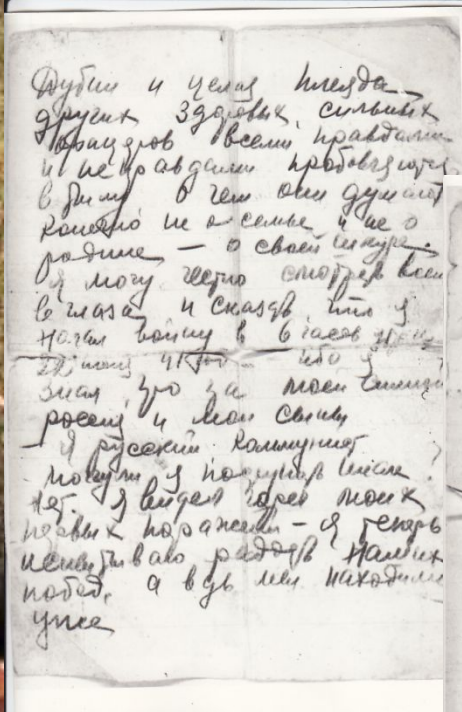 Дубин и целая плеяда
других здоровых, сильных
офицеров всеми правдами
и неправдами пробовались
в тыл. О чем они думают
конечно не о семье и не о
родине — о своей шкуре.
Я могу честно смотреть всем
в глаза и сказать, что я
начал войну в 6 часов утра
22 июня 41 года что я
знал, что за моей спиной
россия и мои сыны
Я русский коммунист
могу ли я поступать иначе?
Нет. Я видел горечь моих
первых поражений — я теперь
испытываю радость наших
побед, а ведь мы находили
уже